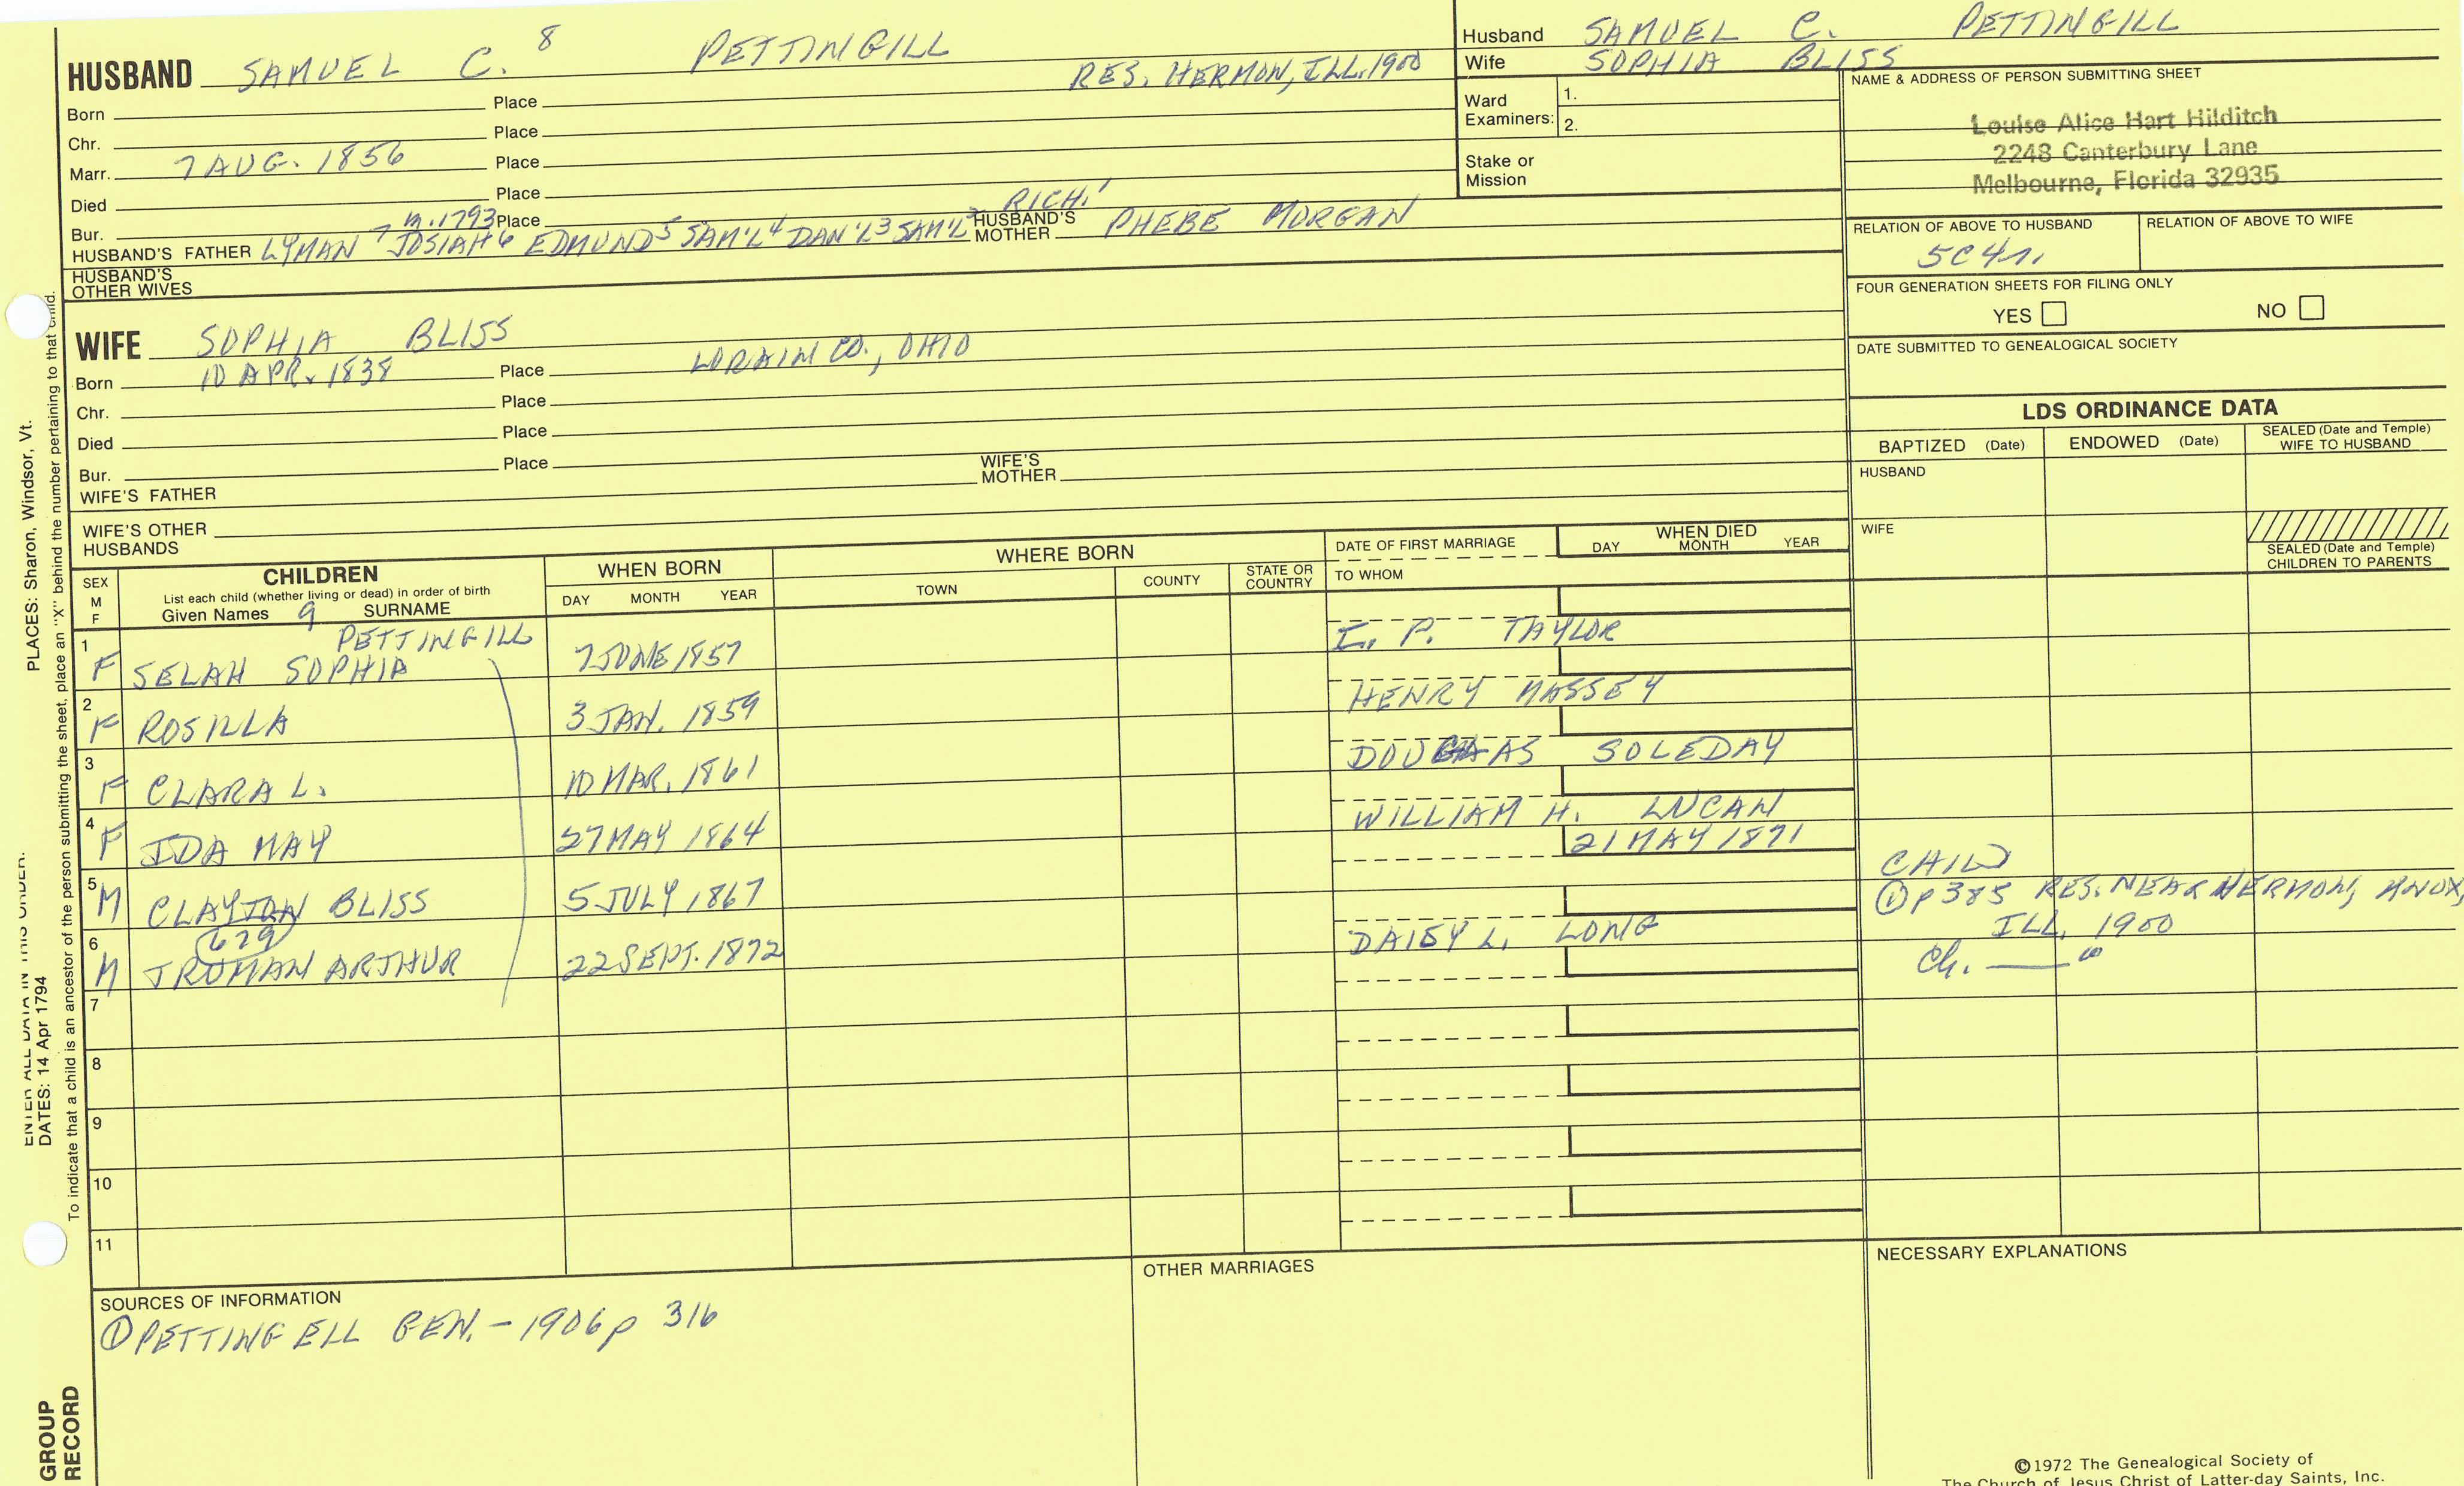 HUSBAND SAMUEL C. 8 PETTINGILL
RES. HERMON, ILL. 1900
Born Place
Chr. Place
Marr. 7 AUG. 1856 Place
Died Place
Bur. m. 1793 Place RICH.1
HUSBAND'S FATHER LYMAN 7 JOSIAH 6 EDMUND 5 SAM'L 4 DAN'L 3 SAM'L 2 HUSBAND'S MOTHER PHEBE MORGAN
HUSBAND'S OTHER WIVES
WIFE SOPHIA BLISS
Born 10 APR. 1838 Place LORAIN CO., OHIO
Chr. Place
Died Place
Bur. Place
WIFE'S FATHER WIFE'S MOTHER
WIFE'S OTHER HUSBANDS
Husband SAMUEL C. PETTINGILL
Wife SOPHIA BLISS
Ward Examiners: 1.
2.
Stake or Mission
NAME & ADDRESS OF PERSON SUBMITTING SHEET
Louise Alice Hart Hilditch
2248 Canterbury Lane
Melbourne, Florida 32935
RELATION OF ABOVE TO HUSBAND RELATION OF ABOVE TO WIFE
5C4r.
FOUR GENERATION SHEETS FOR FILING ONLY
YES NO
DATE SUBMITTED TO GENEALOGICAL SOCIETY
LDS ORDINANCE DATA
BAPTIZED (Date) ENDOWED (Date) SEALED (Date and Temple) WIFE TO HUSBAND
HUSBAND
WIFE
SEALED (Date and Temple) CHILDREN TO PARENTS
SEX M F
CHILDREN
List each child (whether living or dead) in order of birth
Given Names 9 SURNAME
WHEN BORN
DAY MONTH YEAR
WHERE BORN
TOWN COUNTY STATE OR COUNTRY
DATE OF FIRST MARRIAGE
TO WHOM
WHEN DIED
DAY MONTH YEAR
PETTINGILL
1 F SELAH SOPHIA 7 JUNE 1857 I. P. TAYLOR
2 F ROSILLA 3 JAN. 1859 HENRY MASSEY
3 F CLARA L. 10 MAR. 1861 DOUGLAS SOLEDAY
4 F IDA MAY 27 MAY 1864 WILLIAM H. LUCAN
5 M CLAYTON BLISS 5 JULY 1867 21 MAY 1871
629
6 M TRUMAN ARTHUR 22 SEPT. 1872 DAISY L. LONG
7
8
9
10
11
CHILD
① p 385 RES. NEAR HERMON, KNOX,
ILL. 1900
Ch.
SOURCES OF INFORMATION
① PETTINGELL GEN. - 1906 p 316
OTHER MARRIAGES
NECESSARY EXPLANATIONS
©1972 The Genealogical Society of
The Church of Jesus Christ of Latter-day Saints, Inc.
PLACES: Sharon, Windsor, Vt.
ENTER ALL DATA IN THIS ORDER:
DATES: 14 Apr 1794
To indicate that a child is an ancestor of the person submitting the sheet, place an "X" behind the number pertaining to that child.
GROUP
RECORD